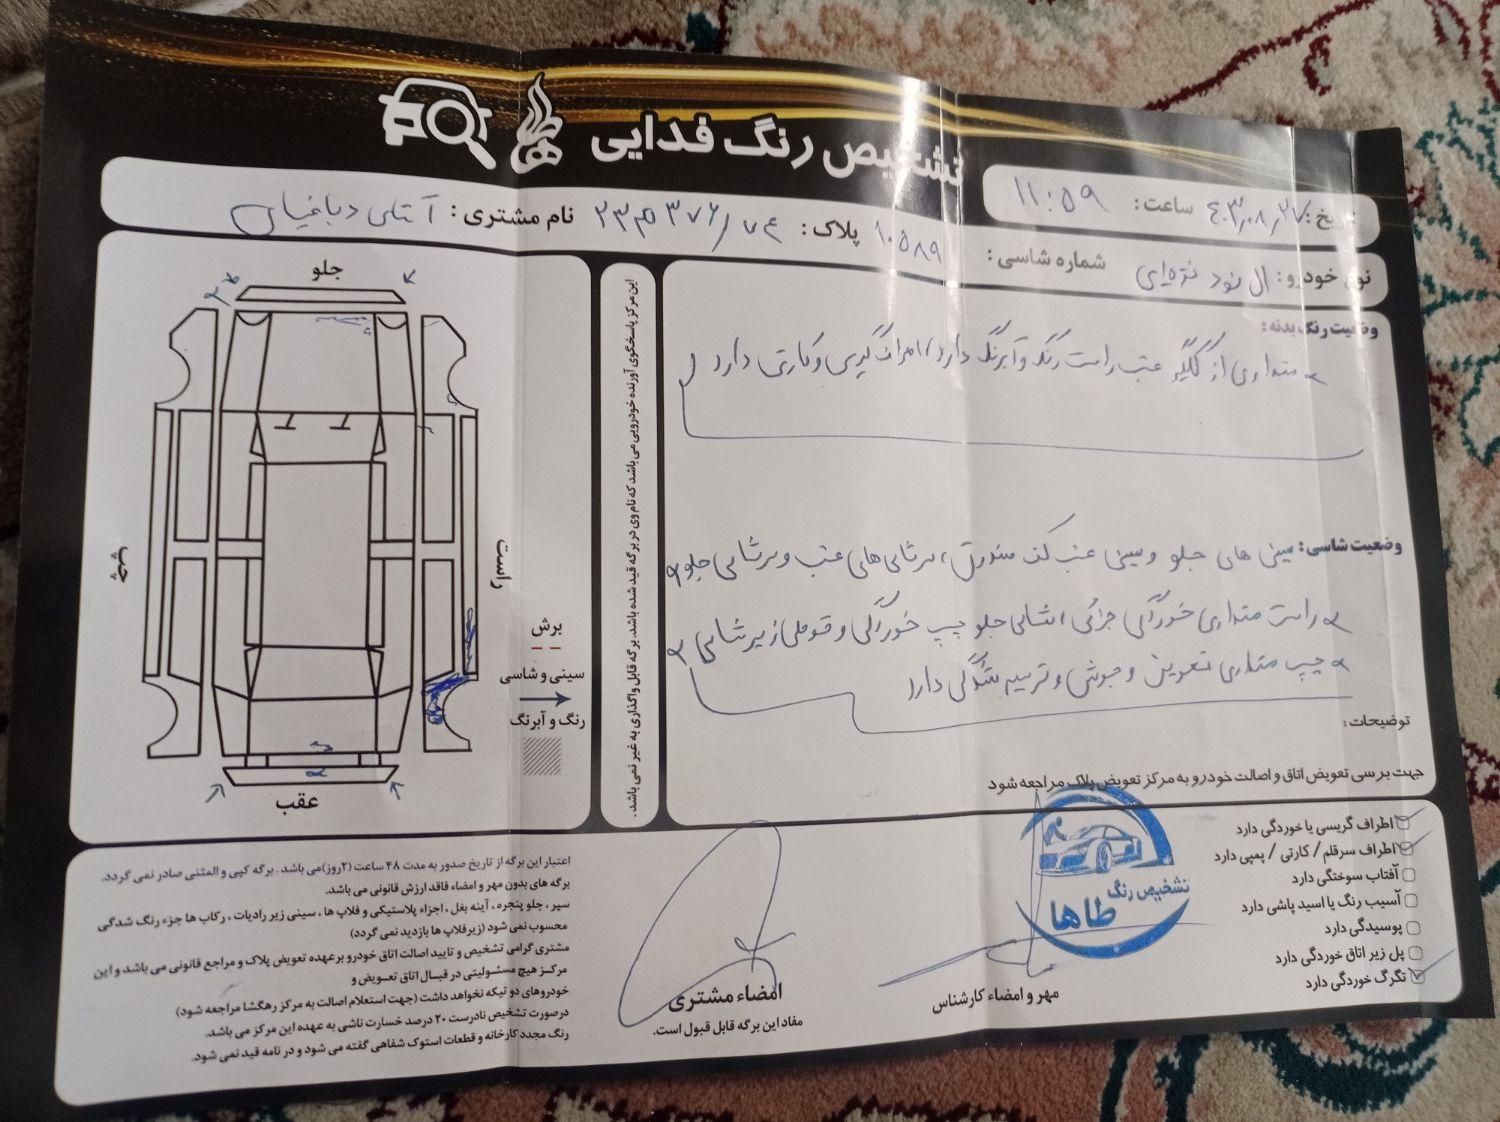 تشخیص رنگ فدایی
تاریخ: ۴۰۳/۰۸/۲۷ ساعت: ۱۱:۵۹
پلاک: ۷۴/
نام مشتری: آقای
نوع خودرو: ال نود نقره‌ای
شماره شاسی: ۱۰۵۸۹
وضعیت رنگ بدنه:
مقداری از گلگیر عقب راست رنگ و آبرنگ دارد، اطراف گریسی و کارتی دارد
وضعیت شاسی: سینی های جلو و سینی عقب کف صندوق، سرشاسی‌های عقب و سرشاسی جلو
راست مقداری خوردگی جزئی، شاسی جلو چپ خوردگی و قوطی زیر شاسی
چپ مقداری تعویض و جوش و ترمیم شدگی دارد
توضیحات:
جهت بررسی تعویض اتاق و اصالت خودرو به مرکز تعویض پلاک مراجعه شود
این مرکز پاسخگوی آورنده خودرویی می باشد که نام وی در برگه قید شده باشد. برگه قابل واگذاری به غیر نمی باشد.
جلو
چپ
راست
عقب
برش
سینی و شاسی
رنگ و آبرنگ
اطراف گریسی یا خوردگی دارد
اطراف سرقلم / کارتی / پمپی دارد
آفتاب سوختگی دارد
آسیب رنگ یا اسید پاشی دارد
پوسیدگی دارد
پل زیر اتاق خوردگی دارد
تگرگ خوردگی دارد
تشخیص رنگ
طاها
مهر و امضاء کارشناس
امضاء مشتری
مفاد این برگه قابل قبول است.
اعتبار این برگه از تاریخ صدور به مدت ۴۸ ساعت (۲روز) می باشد. برگه کپی و المثنی صادر نمی گردد.
برگه های بدون مهر و امضاء فاقد ارزش قانونی می باشد.
سپر، جلو پنجره، آینه بغل، اجزاء پلاستیکی و فلاپ ها، سینی زیر رادیات، رکاب ها جزء رنگ شدگی
محسوب نمی شود (زیرفلاپ ها بازدید نمی گردد)
مشتری گرامی تشخیص و تایید اصالت اتاق خودرو برعهده تعویض پلاک و مراجع قانونی می باشد و این
مرکز هیچ مسئولیتی در قبال اتاق تعویض و
خودروهای دو تیکه نخواهد داشت (جهت استعلام اصالت به مرکز رهگشا مراجعه شود)
درصورت تشخیص نادرست ۲۰ درصد خسارت ناشی به عهده این مرکز می باشد.
رنگ مجدد کارخانه و قطعات استوک شفاهی گفته می شود و در نامه قید نمی شود.